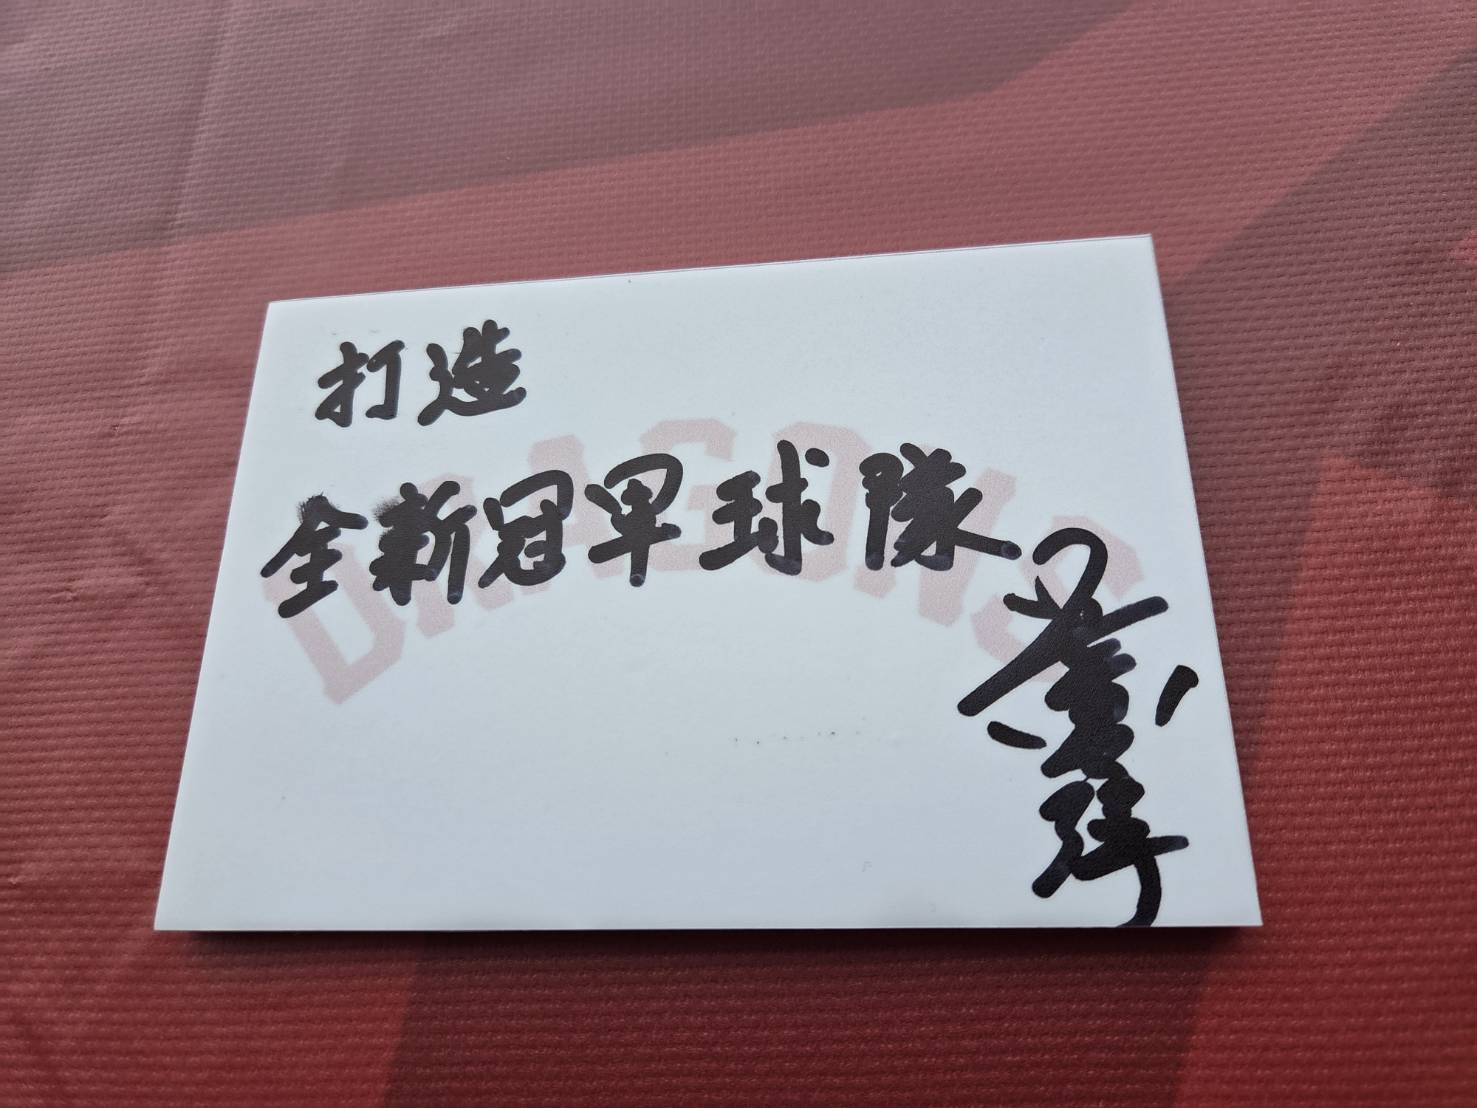 打造
全新冠軍球隊
DRAGONS